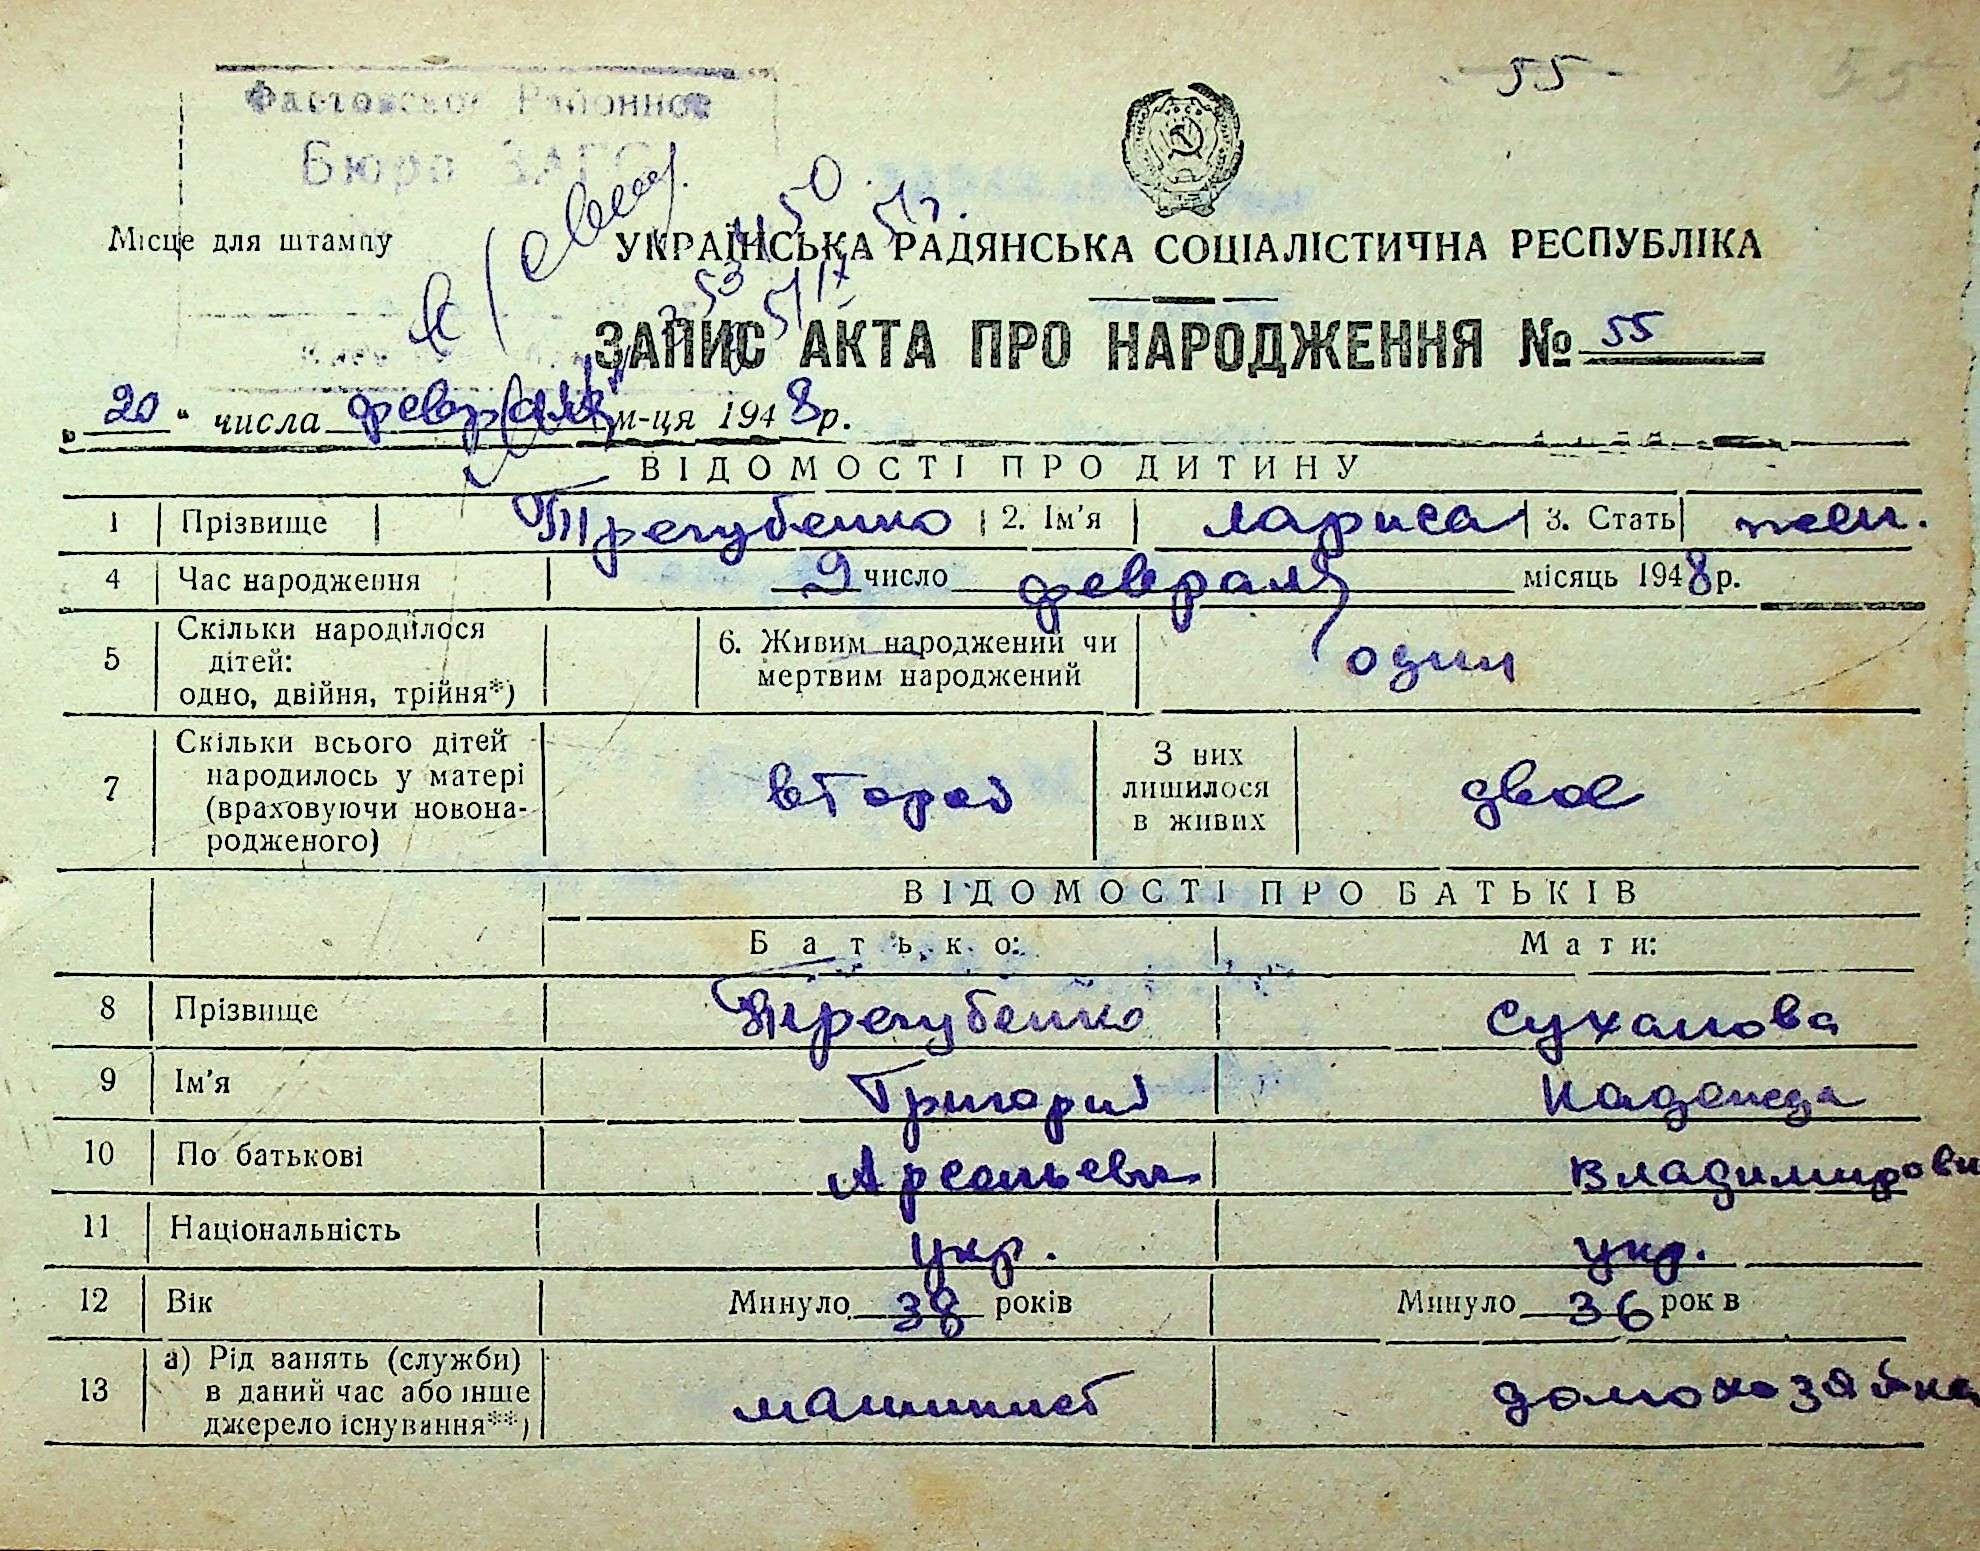 55 55
Фастовское Районное
Бюро ЗАГС
Місце для штампу
УКРАЇНСЬКА РАДЯНСЬКА СОЦІАЛІСТИЧНА РЕСПУБЛІКА
ЗАПИС АКТА ПРО НАРОДЖЕННЯ № 55
„ 20 " числа февраля м-ця 1948 р.
ВІДОМОСТІ ПРО ДИТИНУ
1 Прізвище Трегубенко 2. Ім'я Лариса 3. Стать жен.
4 Час народження 9 число февраля місяць 1948 р.
5 Скільки народилося дітей: одно, двійня, трійня*) 6. Живим народжений чи мертвим народжений один
7 Скільки всього дітей народилось у матері (враховуючи новонародженого) второй З них лишилося в живих двое
ВІДОМОСТІ ПРО БАТЬКІВ
Батько: Мати:
8 Прізвище Трегубенко Суханова
9 Ім'я Григорий Надежда
10 По батькові Арсеньевич Владимировн
11 Національність укр. укр.
12 Вік Минуло 38 років Минуло 36 рок в
13 а) Рід занять (служби) в даний час або інше джерело існування**) машинист домохозяйка